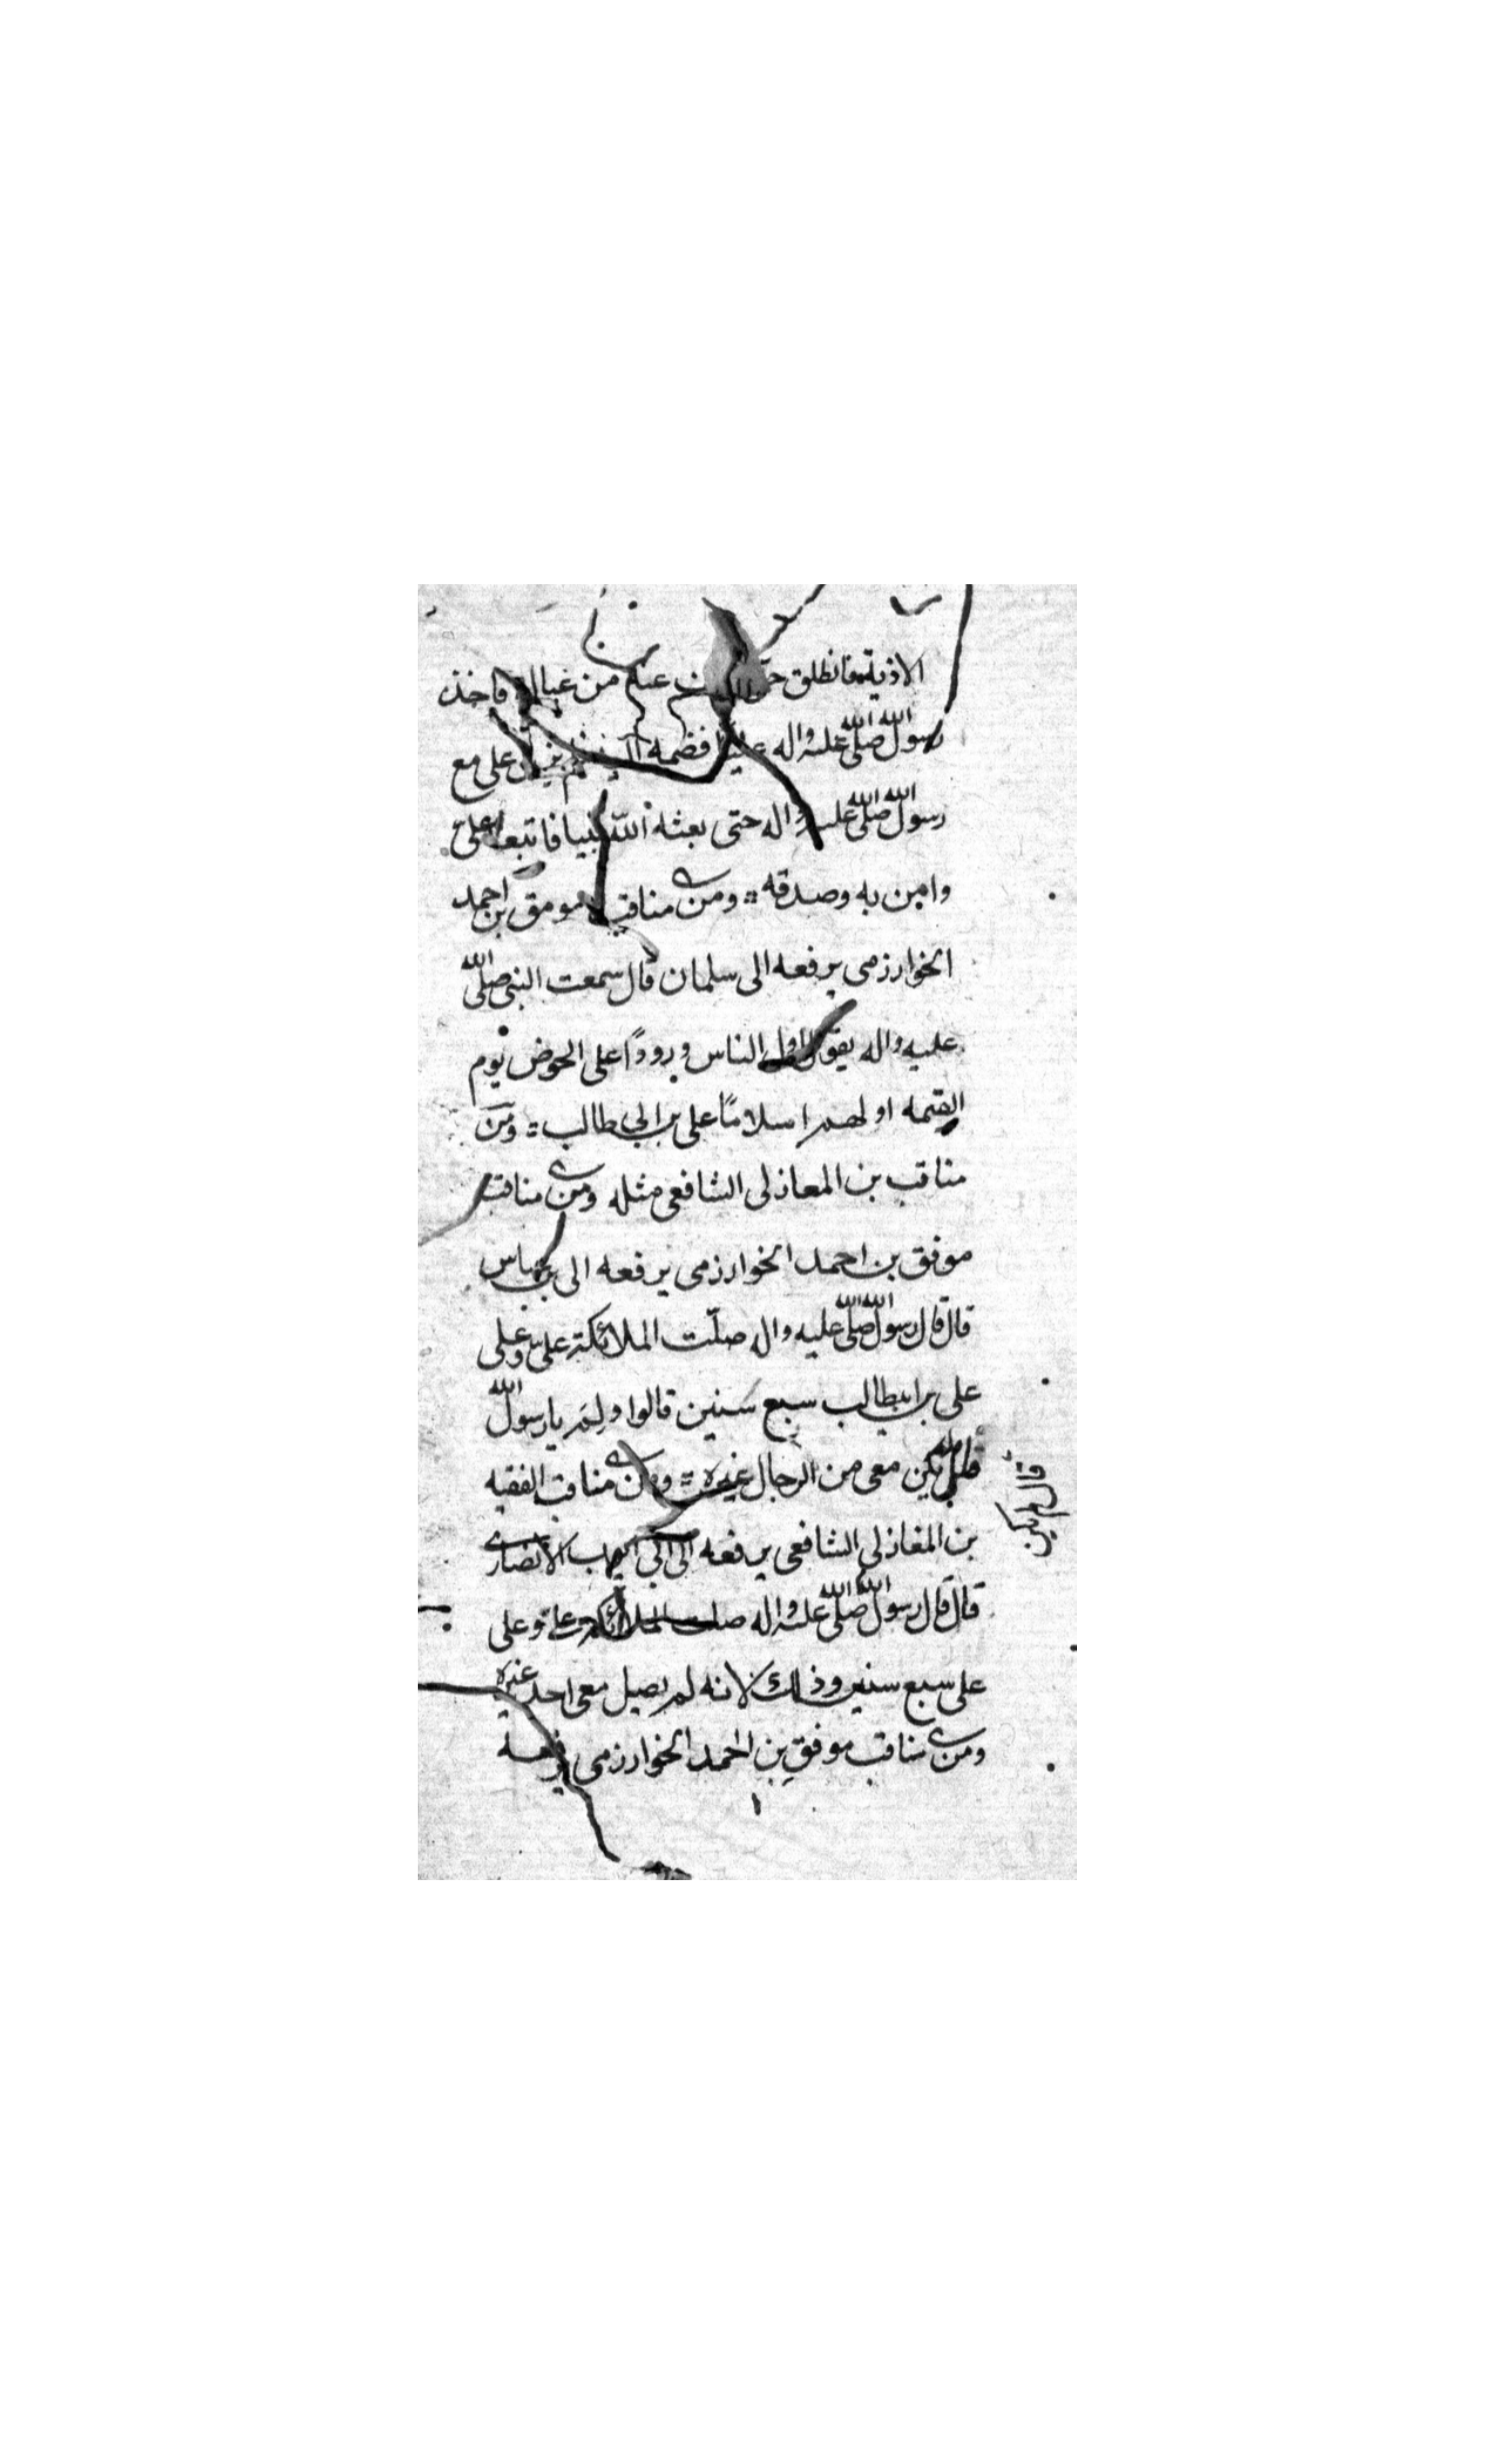 الاذية فانطلق عنه من عياله فاخذ
رسول الله صلى الله عليه واله عليا فضمه على مع
رسول الله صلى الله عليه واله حتى بعثه الله نبيا فاتبعه على
وامن به وصدقه ومن مناقب موفق بن احمد
الخوارزمى يرفعه الى سلمان قال سمعت النبى صلى الله
عليه واله يقول اول الناس ورودًا على الحوض يوم
القيمه اولهم اسلامًا على بن ابى طالب ومن
مناقب بن المغازلى الشافعى مثله ومن مناقب
موفق بن احمد الخوارزمى يرفعه الى
قال قال رسول الله صلى الله عليه واله صلّت الملائكة على وعلى
على بن ابيطالب سبع سنين قالوا ولِمَ يا رسول الله
يكن معى من الرجال غيره ومن مناقب الفقيه
بن المغازلى الشافعى يرفعه الى ابى ايوب الانصارى
قال قال رسول الله صلى الله عليه واله صلت الملائكة على وعلى
على سبع سنين وذلك لانه لم يصل معى احد غيره
ومن مناقب موفق بن احمد الخوارزمى يرفعه
قال لم يكن